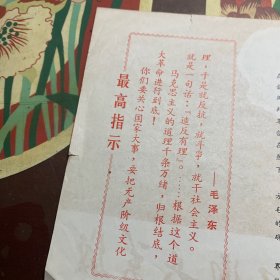 最高指示
你们要关心国家大事，要把无产阶级文化
大革命进行到底！
马克思主义的道理千条万绪，归根结底，
就是一句话：“造反有理”。……根据这个道
理，于是就反抗，就斗争，就干社会主义。
——毛泽东